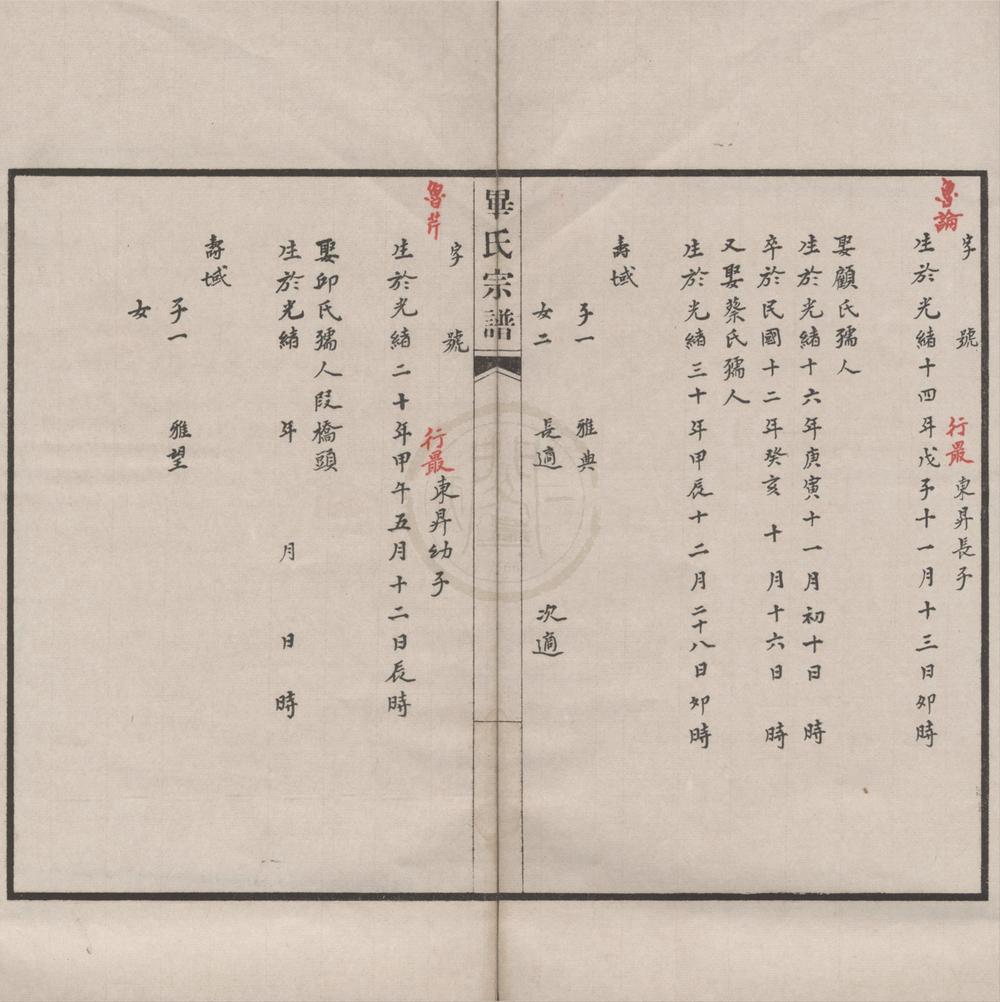 魯論
字 號 行嚴 東昇長子
生於光緒十四年戊子十一月十三日卯時
娶顧氏孺人
生於光緒十六年庚寅十一月初十日 時
卒於民國十二年癸亥 十 月十六日 時
又娶蔡氏孺人
生於光緒三十年甲辰十二月二十八日卯時
壽域
子一 雅典
女二 長適 次適
畢氏宗譜
魯芹
字 號 行嚴 東昇幼子
生於光緒二十年甲午五月十二日辰時
娶邱氏孺人段橋頭
生於光緒 年 月 日 時
壽域
子一 雅望
女